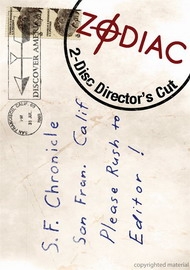 ZODIAC
2-Disc Director's Cut
DISCOVER AMERICA
SAN FRANCISCO, CALIF.
PM
S.F. Chronicle
San Fran. Calif
Please Rush to
Editor !
copyrighted material